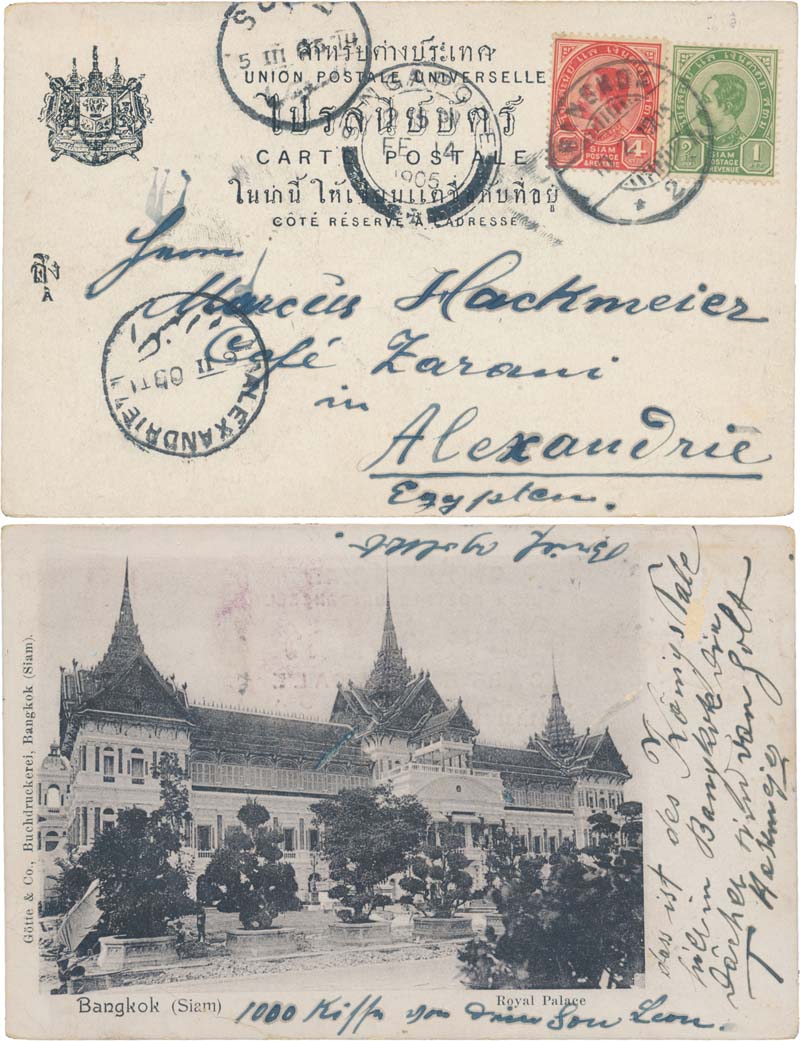 สำหรับต่างประเทศ
UNION POSTALE UNIVERSELLE
ไปรสนียบัตร์
CARTE POSTALE
ในน่านี้ ให้เขียนแต่ชื่อกับที่อยู่
CÔTÉ RÉSERVÉ A L'ADRESSE
5 III
FE 14
1905
SIAM
POSTAGE
& REVENUE
4
2
SIAM
POSTAGE
& REVENUE
1
2
ถึง
A
Herrn
Marcus Hackmeier
Café Zarani
in
Alexandrie
Egypten.
ALEXANDRIE
II 05
Götte & Co., Buchdruckerei, Bangkok (Siam).
das ist des Königs
in Bangkok
Dächer sind von Golt
Bangkok (Siam)
Royal Palace
1000 Küsse von dein Son Leon.